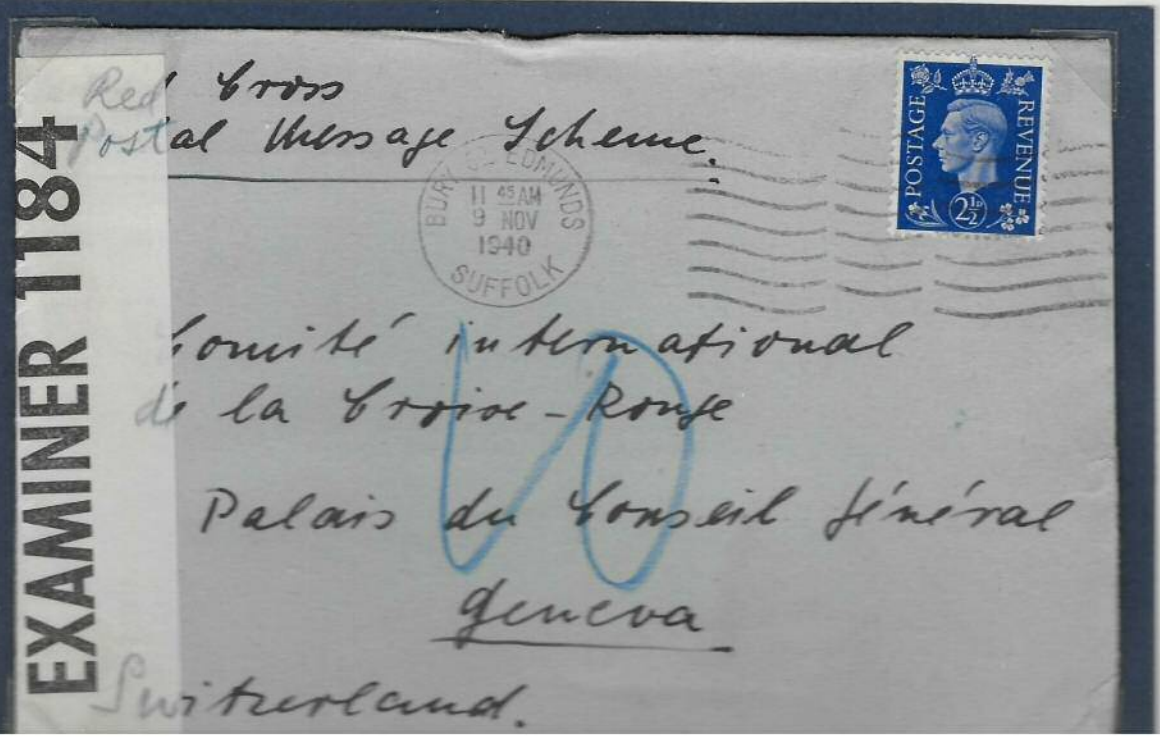 Red Cross
Postal Message Scheme.
BURY ST EDMUNDS
11 45 AM
9 NOV
1940
SUFFOLK
POSTAGE
REVENUE
2½D
EXAMINER 1184
Comité international
de la Croix-Rouge
Palais du Conseil Général
Geneva
Switzerland.